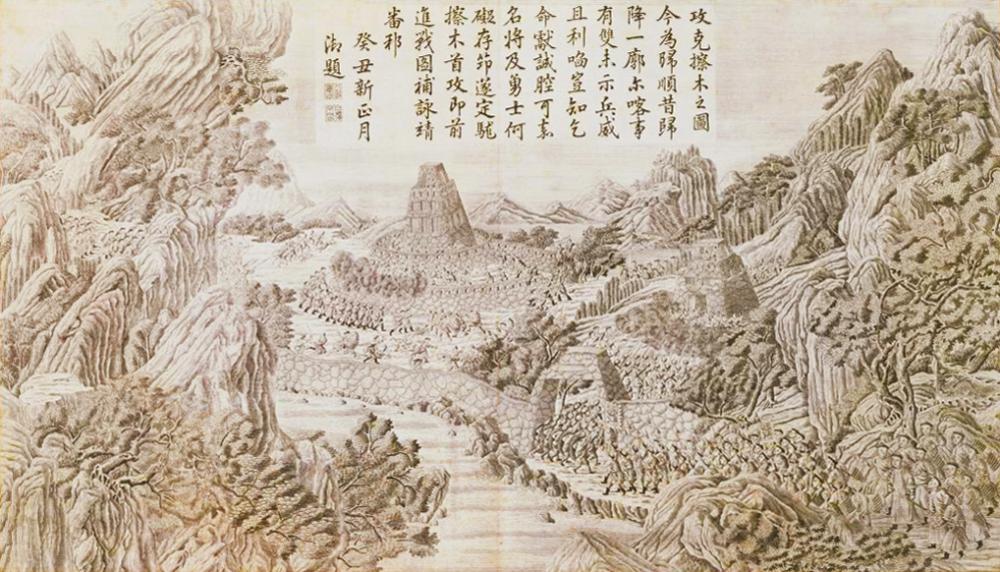 攻克擦木之圖
今為歸順昔歸
降一廓尔喀事
有雙未示兵威
且利啗豈知乞
命獻誠腔可嘉
名將及勇士何
礙存遂定駹
擦木首攻即前
進戰圖補詠靖
番邦
癸丑新正月
御題